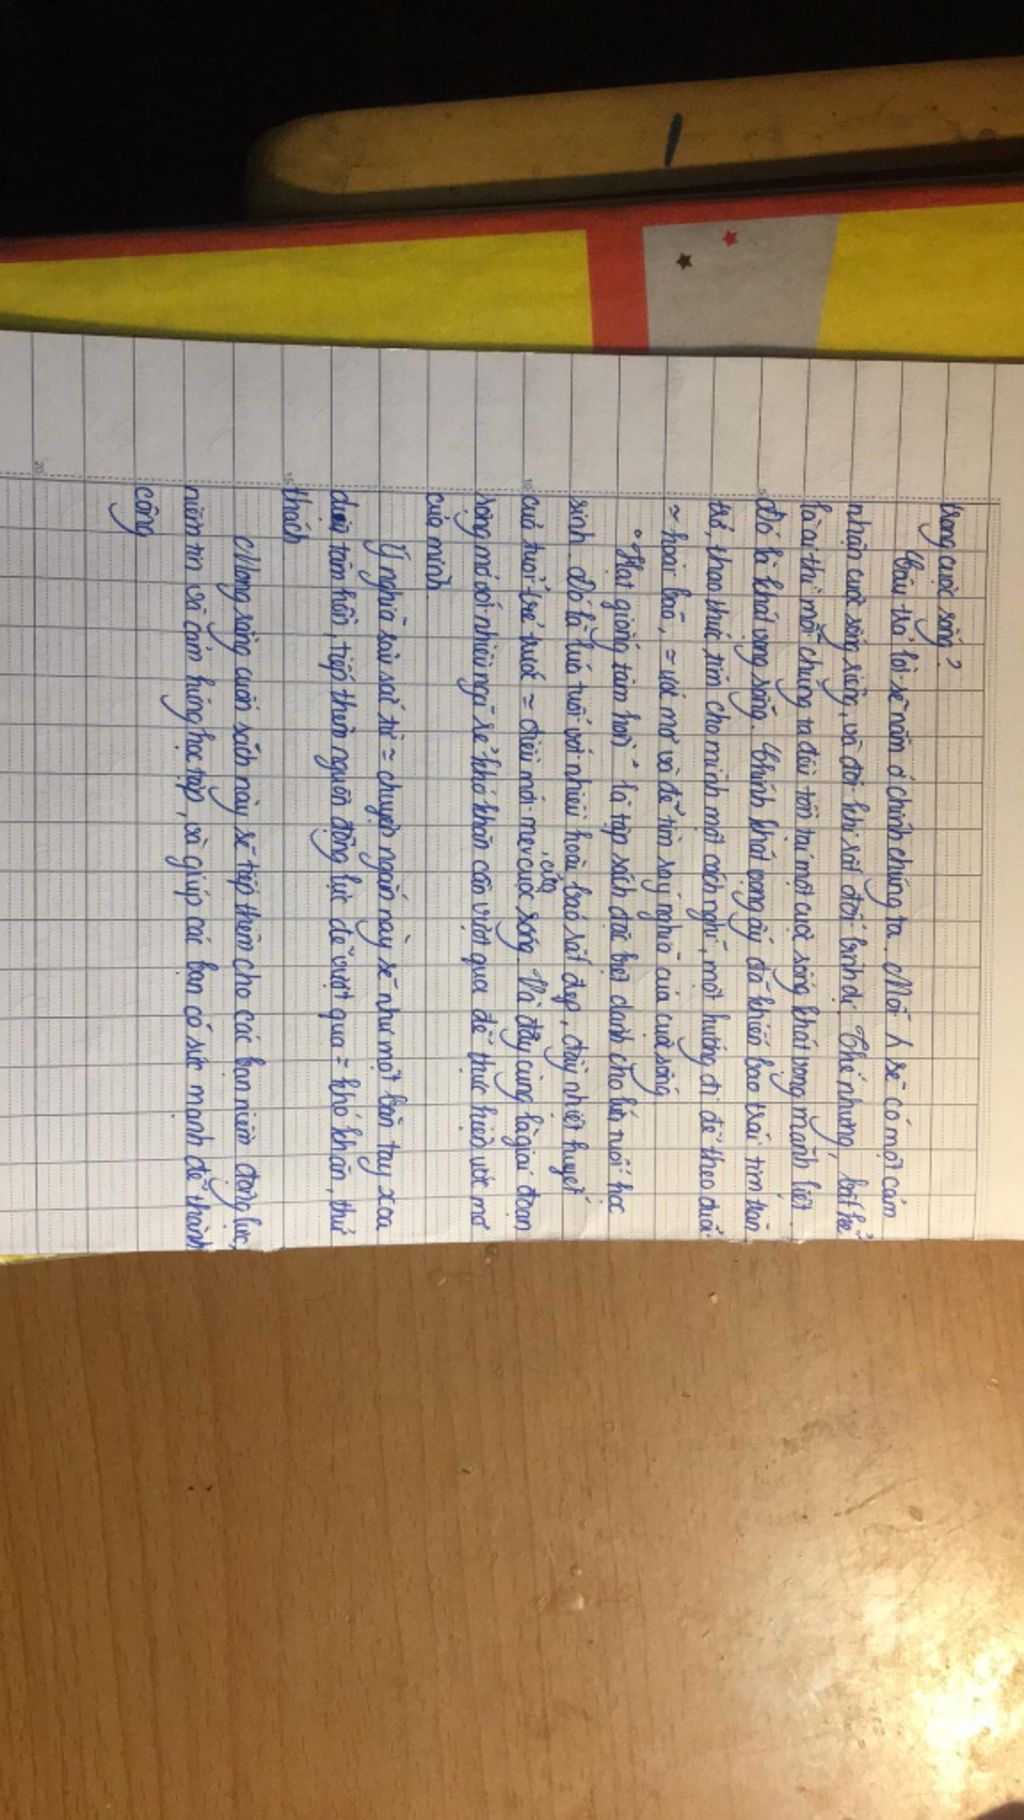 trong cuộc sống?
Câu trả lời sẽ nằm ở chính chúng ta. Mỗi k sẽ có một cảm
nhận cuộc sống riêng, và đôi khi rất đỗi bình dị. Thế nhưng, bất kể
là ai thì mỗi chúng ta đều tồn tại một cuộc sống khát vọng mãnh liệt.
Đó là khát vọng sống. Chính khát vọng ấy đã khiến bao trái tim trăn
trở, thao thức tìm cho mình một cách nghĩ, một hướng đi để theo đuổi
≈ hoài bão, ≈ ước mơ và để tìm ra ý nghĩa của cuộc sống
"Hạt giống tâm hồn" là tập sách đặc biệt dành cho lứa tuổi học
sinh. Đó là lứa tuổi với nhiều hoài bão rất đẹp, đầy nhiệt huyết
của tuổi trẻ trước ≈ điều mới mẻ của cuộc sống. Và đây cũng là giai đoạn
sóng mà với nhiều ngã rẽ khó khăn cần vượt qua để thực hiện ước mơ
của mình
Ý nghĩa sâu sắc từ ≈ chuyện ngắn này sẽ như một bàn tay xoa
dịu tâm hồn, tiếp thêm nguồn động lực để vượt qua ≈ khó khăn, thử
thách
Mong rằng cuốn sách này sẽ tiếp thêm cho các bạn niềm động lực,
niềm tin và cảm hứng học tập, và giúp các bạn có sức mạnh để thành
công
20